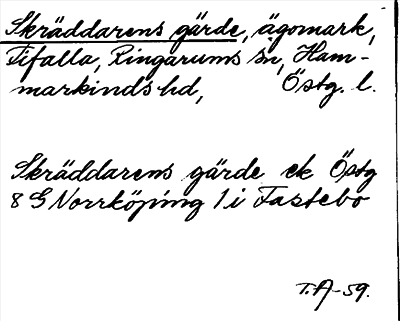 Skräddarens gärde, ägomark,
Fifalla, Ringarums sn, Ham-
markinds hd, Östg. l.
Skräddarens gärde ek Östg
8 G Norrköping 1 i Fastebo
T.A-59.